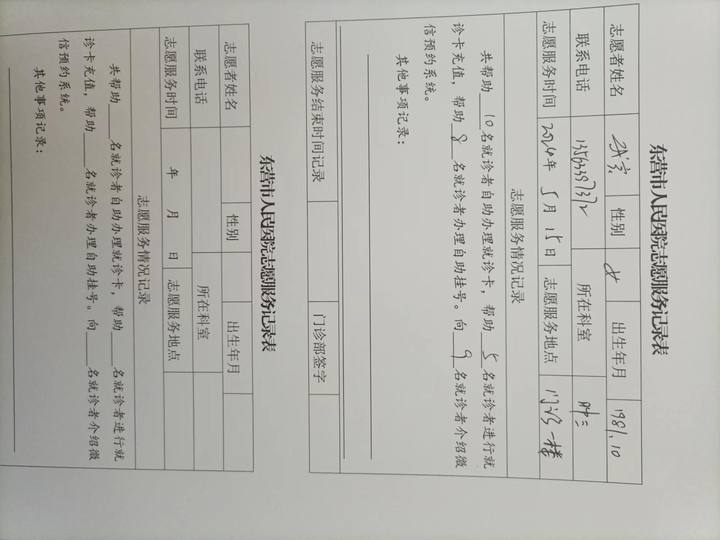 东营市人民医院志愿服务记录表
志愿者姓名 性别 女 出生年月 1981.10
联系电话 13563397372 所在科室 肿三
志愿服务时间 2024年 5月 15日 志愿服务地点 门诊一楼
志愿服务情况记录
共帮助 10 名就诊者自助办理就诊卡，帮助 5 名就诊者进行就
诊卡充值，帮助 8 名就诊者办理自助挂号。向 9 名就诊者介绍微
信预约系统。
其他事项记录：
志愿服务结束时间记录 门诊部签字
东营市人民医院志愿服务记录表
志愿者姓名 性别 出生年月
联系电话 所在科室
志愿服务时间 年 月 日 志愿服务地点
志愿服务情况记录
共帮助____名就诊者自助办理就诊卡，帮助____名就诊者进行就
诊卡充值，帮助____名就诊者办理自助挂号。向____名就诊者介绍微
信预约系统。
其他事项记录：